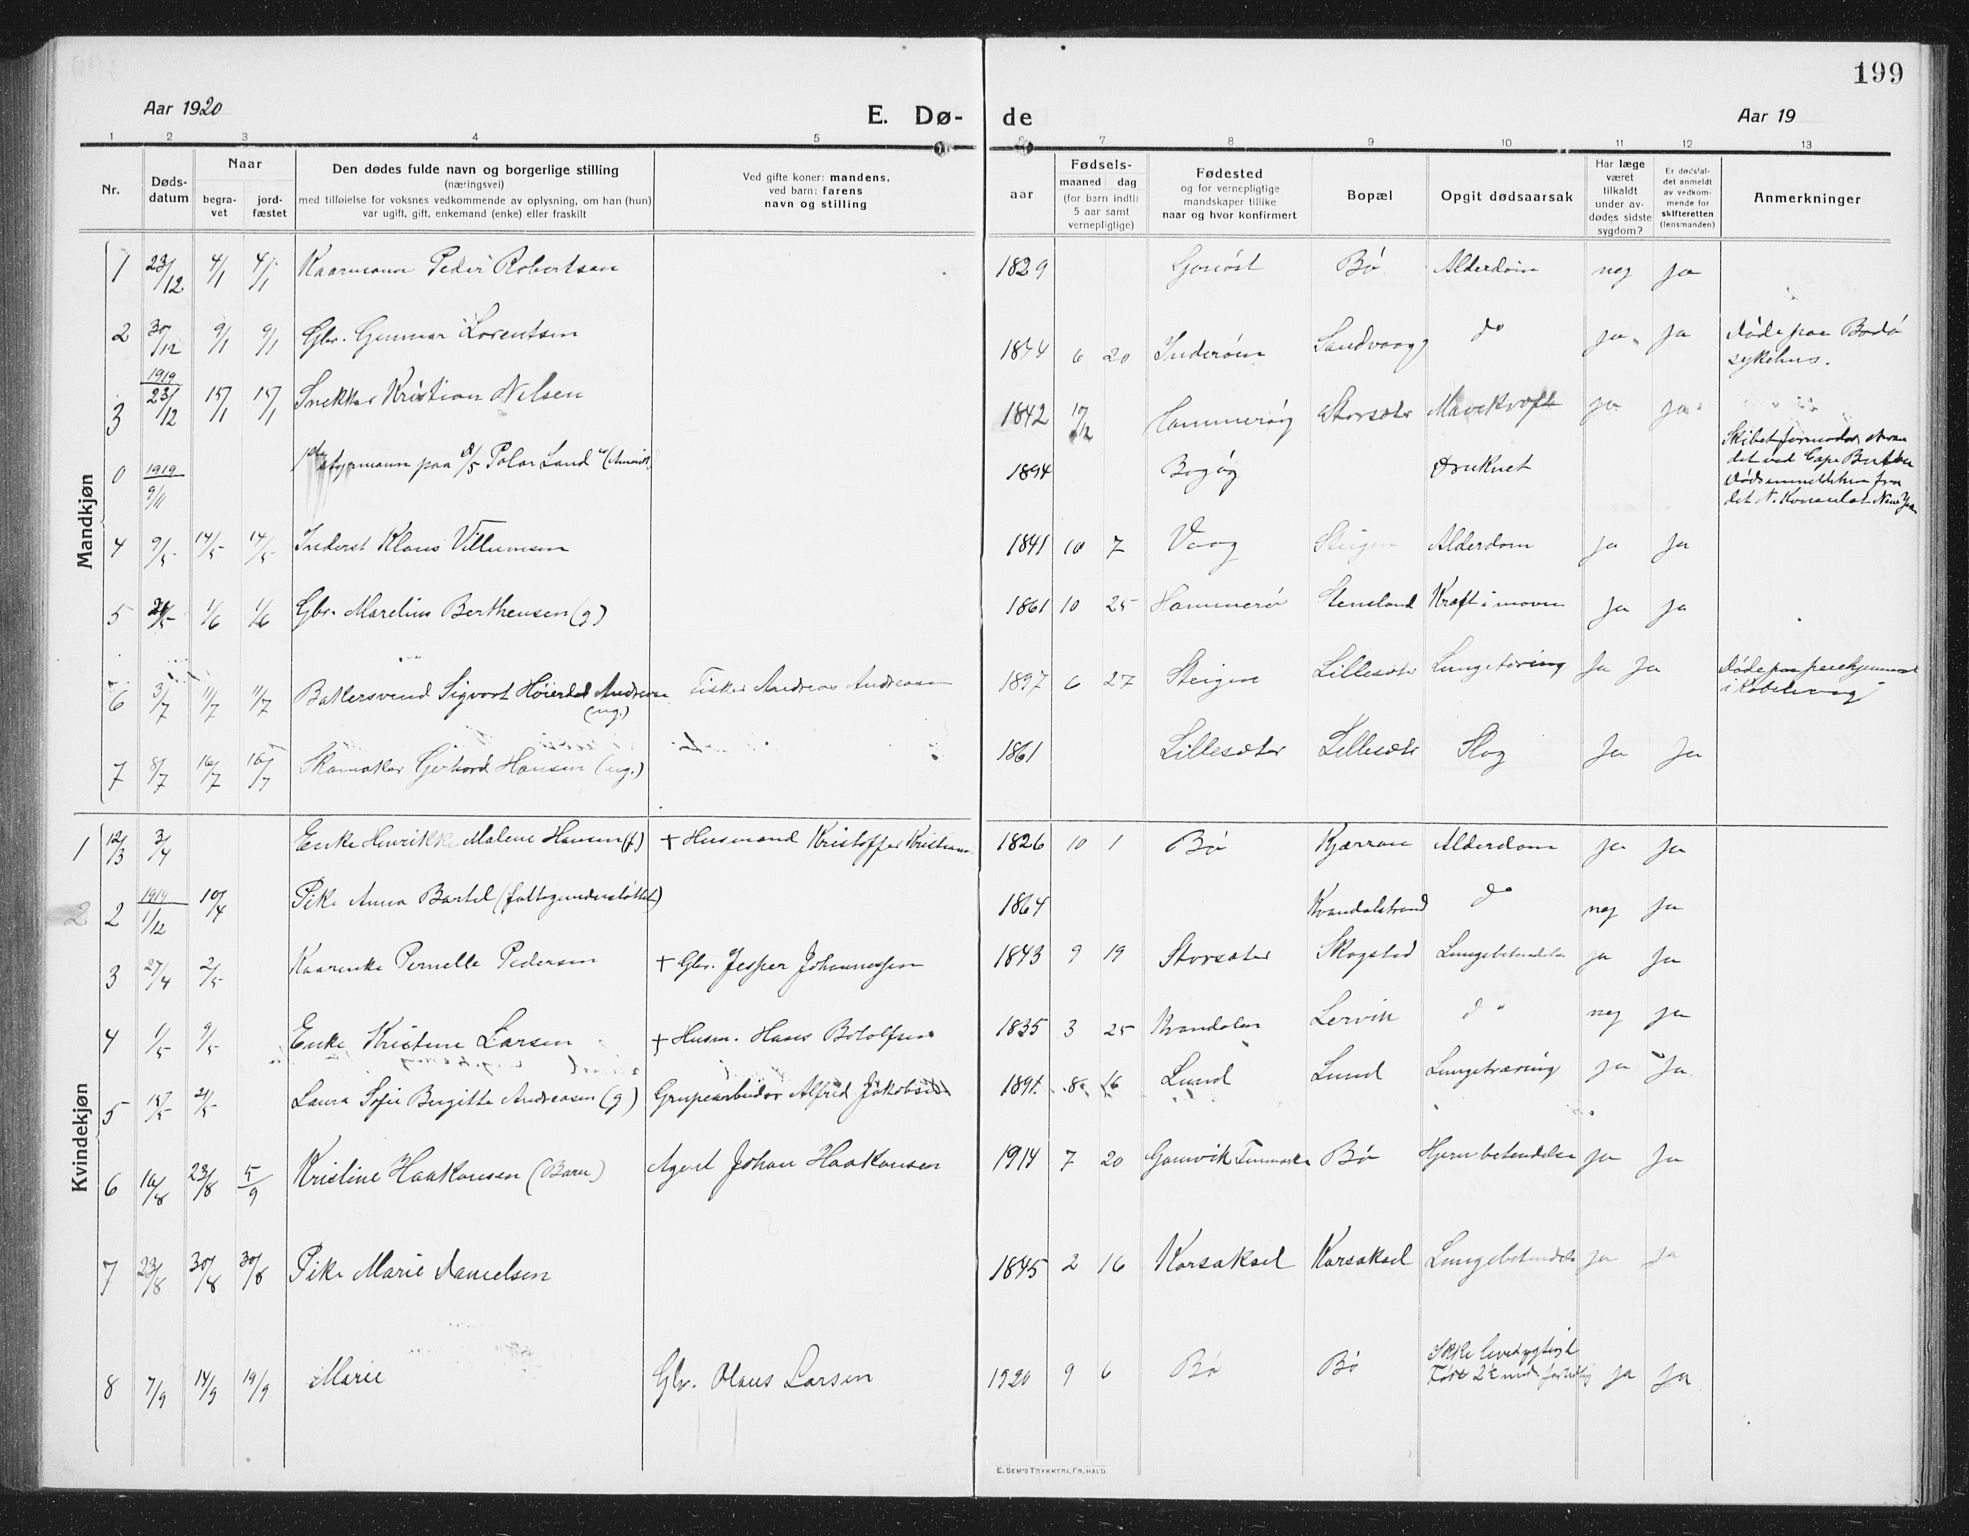 199
Aar 1920
E. Dø-
de
Aar 19
1 2 3 4 5 6 7 8 9 10 11 12 13
Nr.
Døds-
datum
Naar
begra-
vet
jord-
fæstet
Den dødes fulde navn og borgerlige stilling
(næringsvei)
med tilføielse for voksnes vedkommende av oplysning, om han (hun)
var ugift, gift, enkemand (enke) eller fraskilt
Ved gifte koner: mandens,
ved barn: farens
navn og stilling
aar
Fødsels-
maaned dag
(for barn indtil
5 aar samt
vernepligtige)
Fødested
og for vernepligtige
mandskaper tillike
naar og hvor konfirmert
Bopæl
Opgit dødsaarsak
Har læge
været
tilkaldt
under av-
dødes sidste
sygdom?
Er dødsfal-
det anmeldt
av vedkom-
mende for
skifteretten
(lensmanden)
Anmerkninger
Mandkjøn
1 23/12 4/1 4/1 Kaarmann Peder Robertsen 1829 Bø Alderdom nej ja
2 30/12 9/1 9/1 Gbr. Gunnar Lorentsen 1844 6 20 Inderøen Sandvaag do ja ja Døde paa Bodø
sykehus.
1919
3 23/12 15/1 15/1 Snekker Kristian Nilsen 1842 10/12 Hammerøy Storsæter Mavekræft ja ja
0 1919 9/11 1ste styrmann paa D/S "Polar Land" 1894 Bogøy Druknet
Skibet
det ved Cape
fra
det N. Konsulat New York
4 9/5 14/5 14/5 Inderst Klaus Villumsen 1841 10 7 Vaag Steigen Alderdom ja ja
5 1/6 1/6 Gbr. Marelius Bertheusen (g) 1861 10 25 Hammerø Stensland Kræft i maven ja ja
6 3/7 11/7 11/7 Bakersvend Sigvart Andreasen Fisker Andreas Andreasen 1897 6 27 Steigen Lillesæter Lungetæring Ja Ja Døde paa pleiehjemmet
(ug.)
i Kabelvaag
7 8/7 16/7 16/7 Skomaker Gerhard Hansen (ug.) 1861 Lillesæter Lillesæter Slag Ja Ja
Kvindekjøn
1 12/3 3/4 Enke Henrikke Malene Hansen + Husmand Kristoffer Kristians 1826 10 1 Bø Kjærran Alderdom ja ja
2 2 1919 1/12 10/4 Pike Anna Bartel (fattigunderstøttet) 1864 Kvandalstrand do nej ja
3 27/4 2/5 Kaarenke Pernelle Pedersen + Gbr. Jesper Johannessen 1843 9 19 Storsæter Skogstad Lungebetændelse ja ja
4 1/5 9/5 Enke Kristine Larsen + Husm. Hans Botolfsen 1835 3 25 Kvandalen Lervik do nej ja
5 15/5 21/5 Laura Sofie Bergitte Andreasen (g) Grupearbeider Alfred Jakobsen 1891 8 16 Lund Lund Lungetæring ja Ja
6 16/8 23/8 5/9 Kristine Haakonsen (Barn) Agent Johan Haakonsen 1914 7 20 Gamvik Finmarken Bø Hjernebetændelse ja Ja
7 23/8 30/8 30/8 Pike Marie Danielsen 1845 2 16 Korsaksel Korsaksel Lungebetændelse ja ja
8 7/9 14/9 19/9 Marie Gbr. Olaus Larsen 1920 9 6 Bø Bø Ikke levedygtigt ja ja
E. SEM'S TRYKKERI, FR.HALD